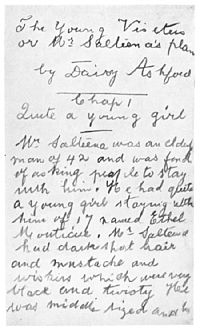 The Young Visiters
or Mr Salteena's plan
by Daisy Ashford
Chap 1
Quite a young girl
Mr Salteena was an elderly
man of 42 and was fond
of asking people to stay
with him. He had quite
a young girl staying with
him of 17 named Ethel
Monticue. Mr Salteena
had dark short hair
and mustache and
wiskers which were very
black and twisty. He
was middle sized and he